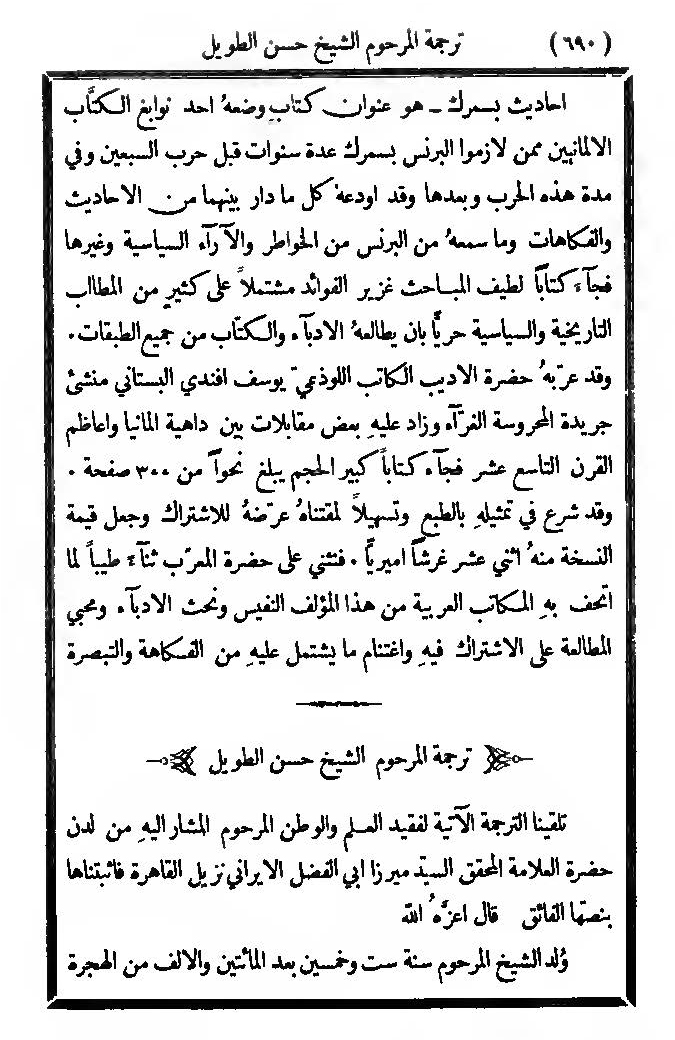 (٦٩٠) ترجمة المرحوم الشيخ حسن الطويل
احاديث بسمرك – هو عنوان كتابٍ وضعهُ احد نوابغ الكتَّاب
الالمانيين ممن لازموا البرنس بسمرك عدة سنوات قبل حرب السبعين وفي
مدة هذه الحرب وبعدها وقد اودعهُ كل ما دار بينهما من الاحاديث
والفكاهات وما سمعهُ من البرنس من الخواطر والآرآء السياسية وغيرها
فجآء كتاباً لطيف المباحث غزير الفوائد مشتملاً على كثيرٍ من المطالب
التاريخية والسياسية حريًّا بان يطالعهُ الادبآء والكتّاب من جميع الطبقات .
وقد عرّبهُ حضرة الاديب الكاتب اللوذعيّ يوسف افندي البستاني منشئ
جريدة المحروسة الغرّآء وزاد عليهِ بعض مقابلات بين داهية المانيا واعاظم
القرن التاسع عشر فجآء كتاباً كبير الحجم يبلغ نحواً من ٣٠٠ صفحة .
وقد شرع في تمثيلهِ بالطبع وتسهيلاً لمقتناهُ عرّضهُ للاشتراك وجعل قيمة
النسخة منهُ اثني عشر غرشاً اميريًّا . فنثني على حضرة المعرّب ثنآءً طيباً لما
اتحف بهِ المكاتب العربية من هذا المؤلف النفيس ونحث الادبآء ومحبي
المطالعة على الاشتراك فيهِ واغتنام ما يشتمل عليهِ من الفكاهة والتبصرة
ترجمة المرحوم الشيخ حسن الطويل
تلقينا الترجمة الآتية لفقيد العلم والوطن المرحوم المشار اليهِ من لدن
حضرة العلامة المحقق السيّد ميرزا ابي الفضل الايراني نزيل القاهرة فاثبتناها
بنصّها الفائق قال اعزَّهُ الله
وُلد الشيخ المرحوم سنة ست وخمسين بعد المائتين والالف من الهجرة